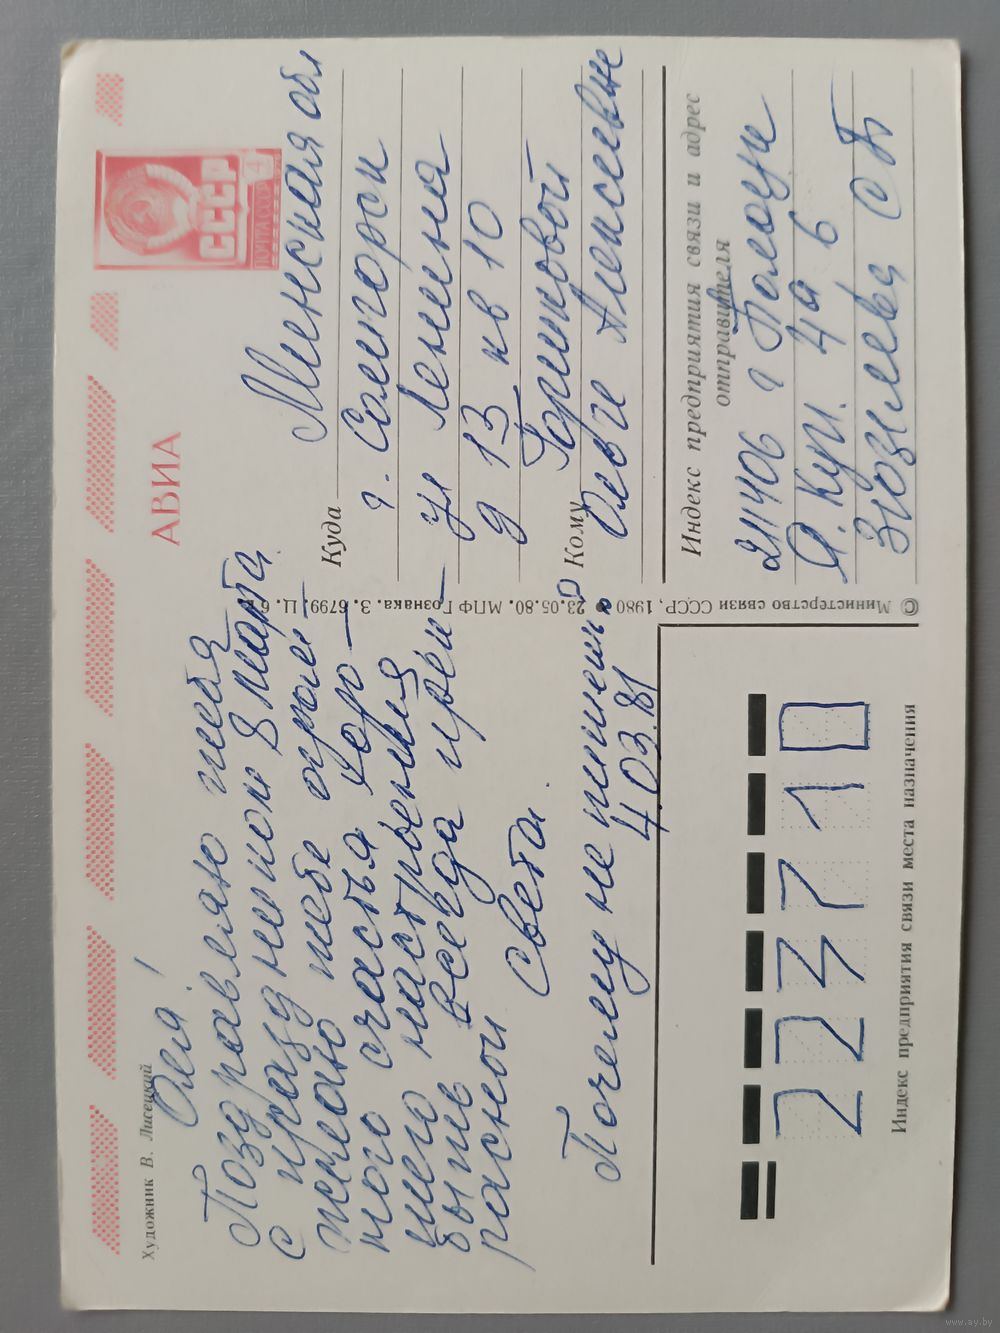 Художник В. Лисецкий
АВИА
ПОЧТА СССР
4
СССР
Оля!
Поздравляю тебя
с праздником 8 марта
желаю тебе огром-
ного счастья хоро-
шего настроения
быть всегда прек-
расной
Света.
Почему не пишешь?
4.03.81
Куда
Минская обл
г. Солигорск
ул Ленина
д 13 кв 10
Кому
Горшковой
Ольге Алексеевне
Индекс предприятия связи и адрес
отправителя
211406 г Полоцк
Я. Куп. 4а 6
С П
223710
Индекс предприятия связи места назначения
© Министерство связи СССР, 1980 • 23.05.80. МПФ Гознака. З. 6799. Ц. 6 к.
www.ay.by